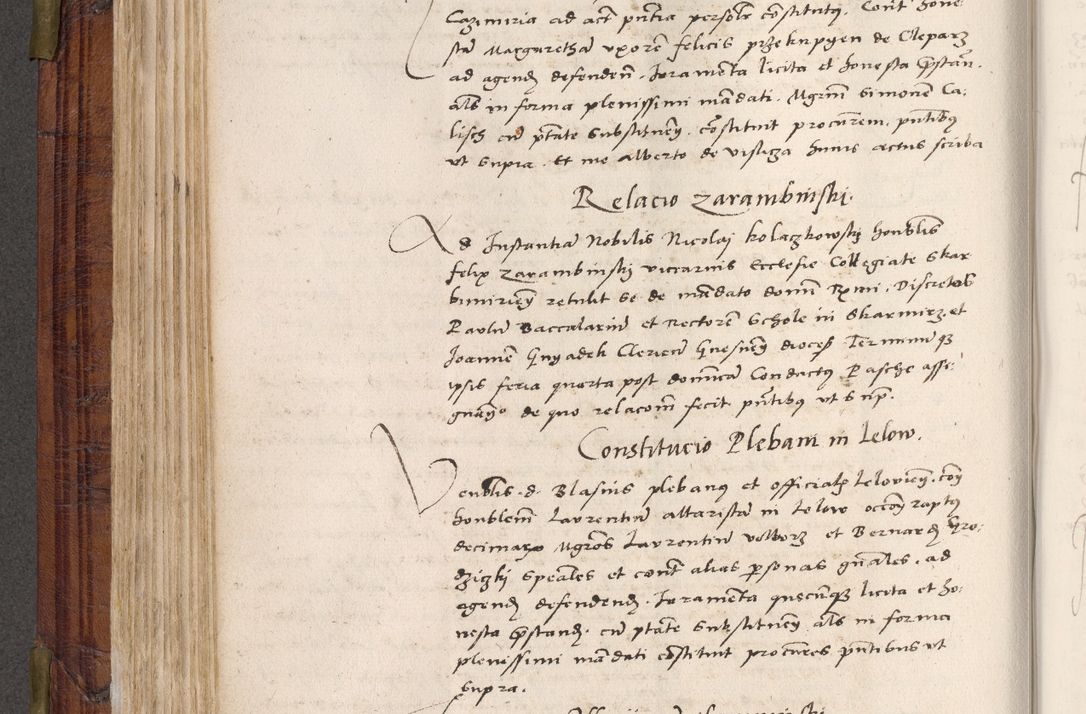 Cazimiria ad act pntia personlr constitutus. Cont hone
sta Margaretha uxore felicis przekupyen de Cleparz
ad agend defendend. Iuramenta licita et honesta prestan.
als in forma plenissimi mandati. Mgrm Simonem Ca
lisch cu ptate substituen. constituit procurem. pntibus
ut supra. Et me Alberto de Vislicza huius actus scriba
Relacio Zarambinski.
Ad Instantia Nobilis Nicolaj kolaczkowskij honblis
felix Zarambinskij vicarius Ecclesie Collegiate Skar
bimirien retulit se de mandato domini Rmi. Discretos
Paulu Baccalariu et Rectore Schole in Skarmirz et
Joannem Gnyadek Clericu Gnesnen dioces Terminuq
ipsis feria quarta post dominica Conductus Pasche assi
gnasse de quo relacom fecit pntibus ut sup.
Constitucio Plebani in Lelow.
Venblis. d. Blasius plebanus et officialis Leloviens. con
honblem Laurentiu altarista in Lelow occone raptus
decimaru Mgros Laurentiu volborz et Bernard Gro
dziczki speales et cont alias personas gnales. ad
agend defendend. Iuramenta quecunq licita et ho
nesta prestand. cu ptate substituen als in forma
plenissimi mandati constituit procures pntibus ut
supra.